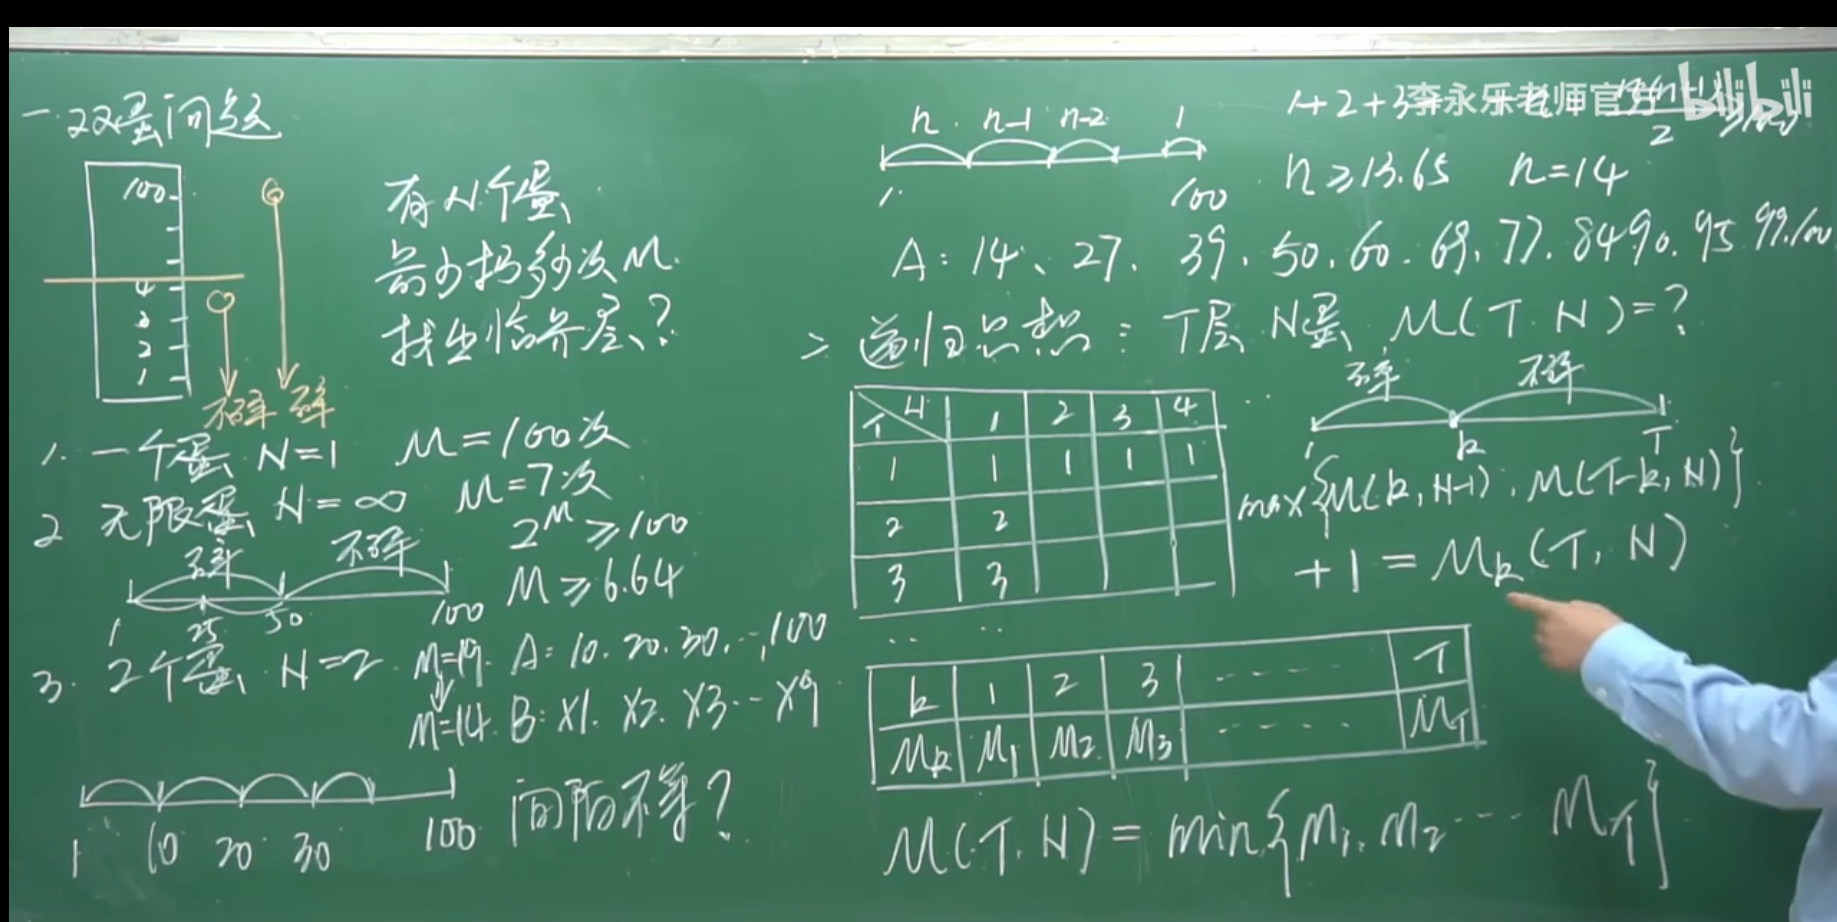 一. 双蛋问题
100
4
3
2
1
不碎 碎
有N个蛋
最少扔多少次M.
找出临界层?
1. 一个蛋 N=1 M=100次
2 无限蛋 N=∞ M=7次
2^M ≥100
M ≥6.64
碎 不碎
1 25 50 100
3. 2个蛋 N=2. M=19. A: 10. 20. 30. ..., 100
M=14. B: X1. X2. X3... X9
1 10 20 30 100
间隔不等?
n n-1 n-2 1
1 100
1+2+3+
2
n ≥13.65 n=14
A: 14、27、39、50、60、69、77、84 90、95 99、100
二 递归思想: T层 N蛋 M(T.N)=?
T N 1 2 3 4 ..
1 1 1 1 1
2 2
3 3
.. ..
碎 不碎
1 k T
max{M(k, N-1), M(T-k, N)}
+1 = M_k(T, N)
k 1 2 3 ---- T
M_k M_1 M_2 M_3 ---- M_T
M(T.N) = min{M_1, M_2 ---- M_T}
李永乐老师官方
bilibili